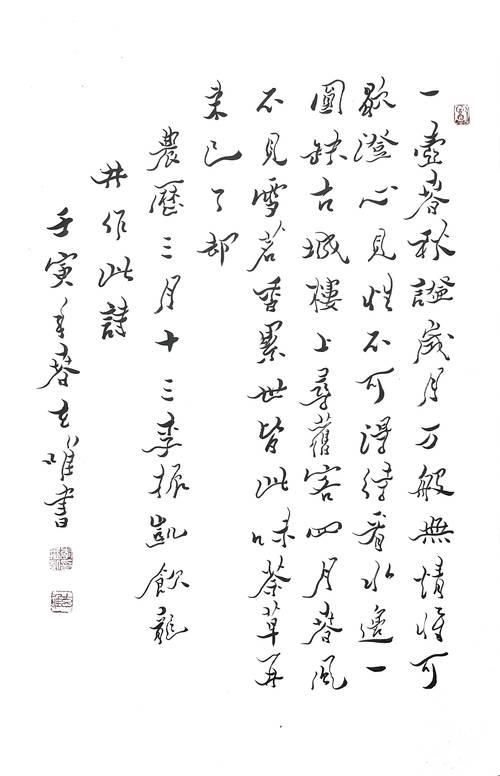 一壺春秋謐歲月万般無情惟可
歇澄心見性不可得待看水邊一
圓缺古城樓上尋舊客四月春風
不見雪茗香累世皆此味茶草再
来已了却
農歷三月十三李振凱飲龍
井作此詩
壬寅年春唯書